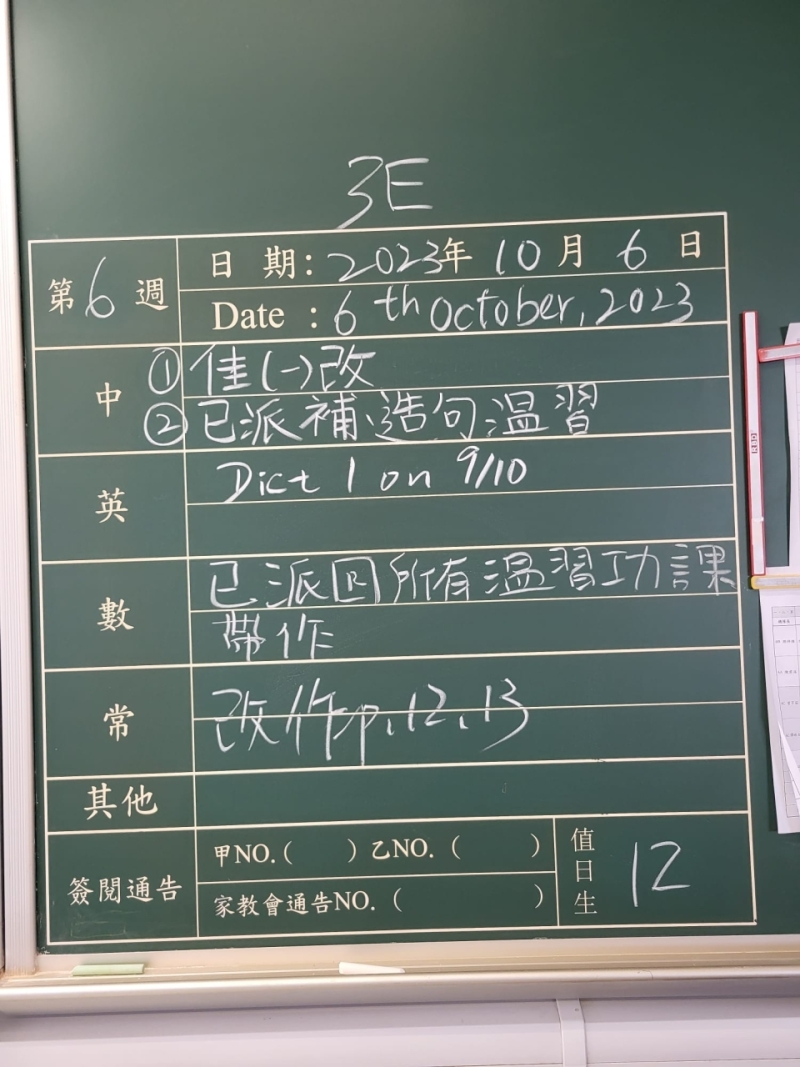 3E
第6週
日 期：2023年 10 月 6 日
Date : 6th October, 2023
中
① 佳(一)改
② 已派補、造句溫習
英
Dict 1 on 9/10
數
已派回所有溫習功課
帶作
常
改作p.12,13
其他
簽閱通告
甲NO.( ) 乙NO. ( )
家教會通告NO. ( )
值日生
12